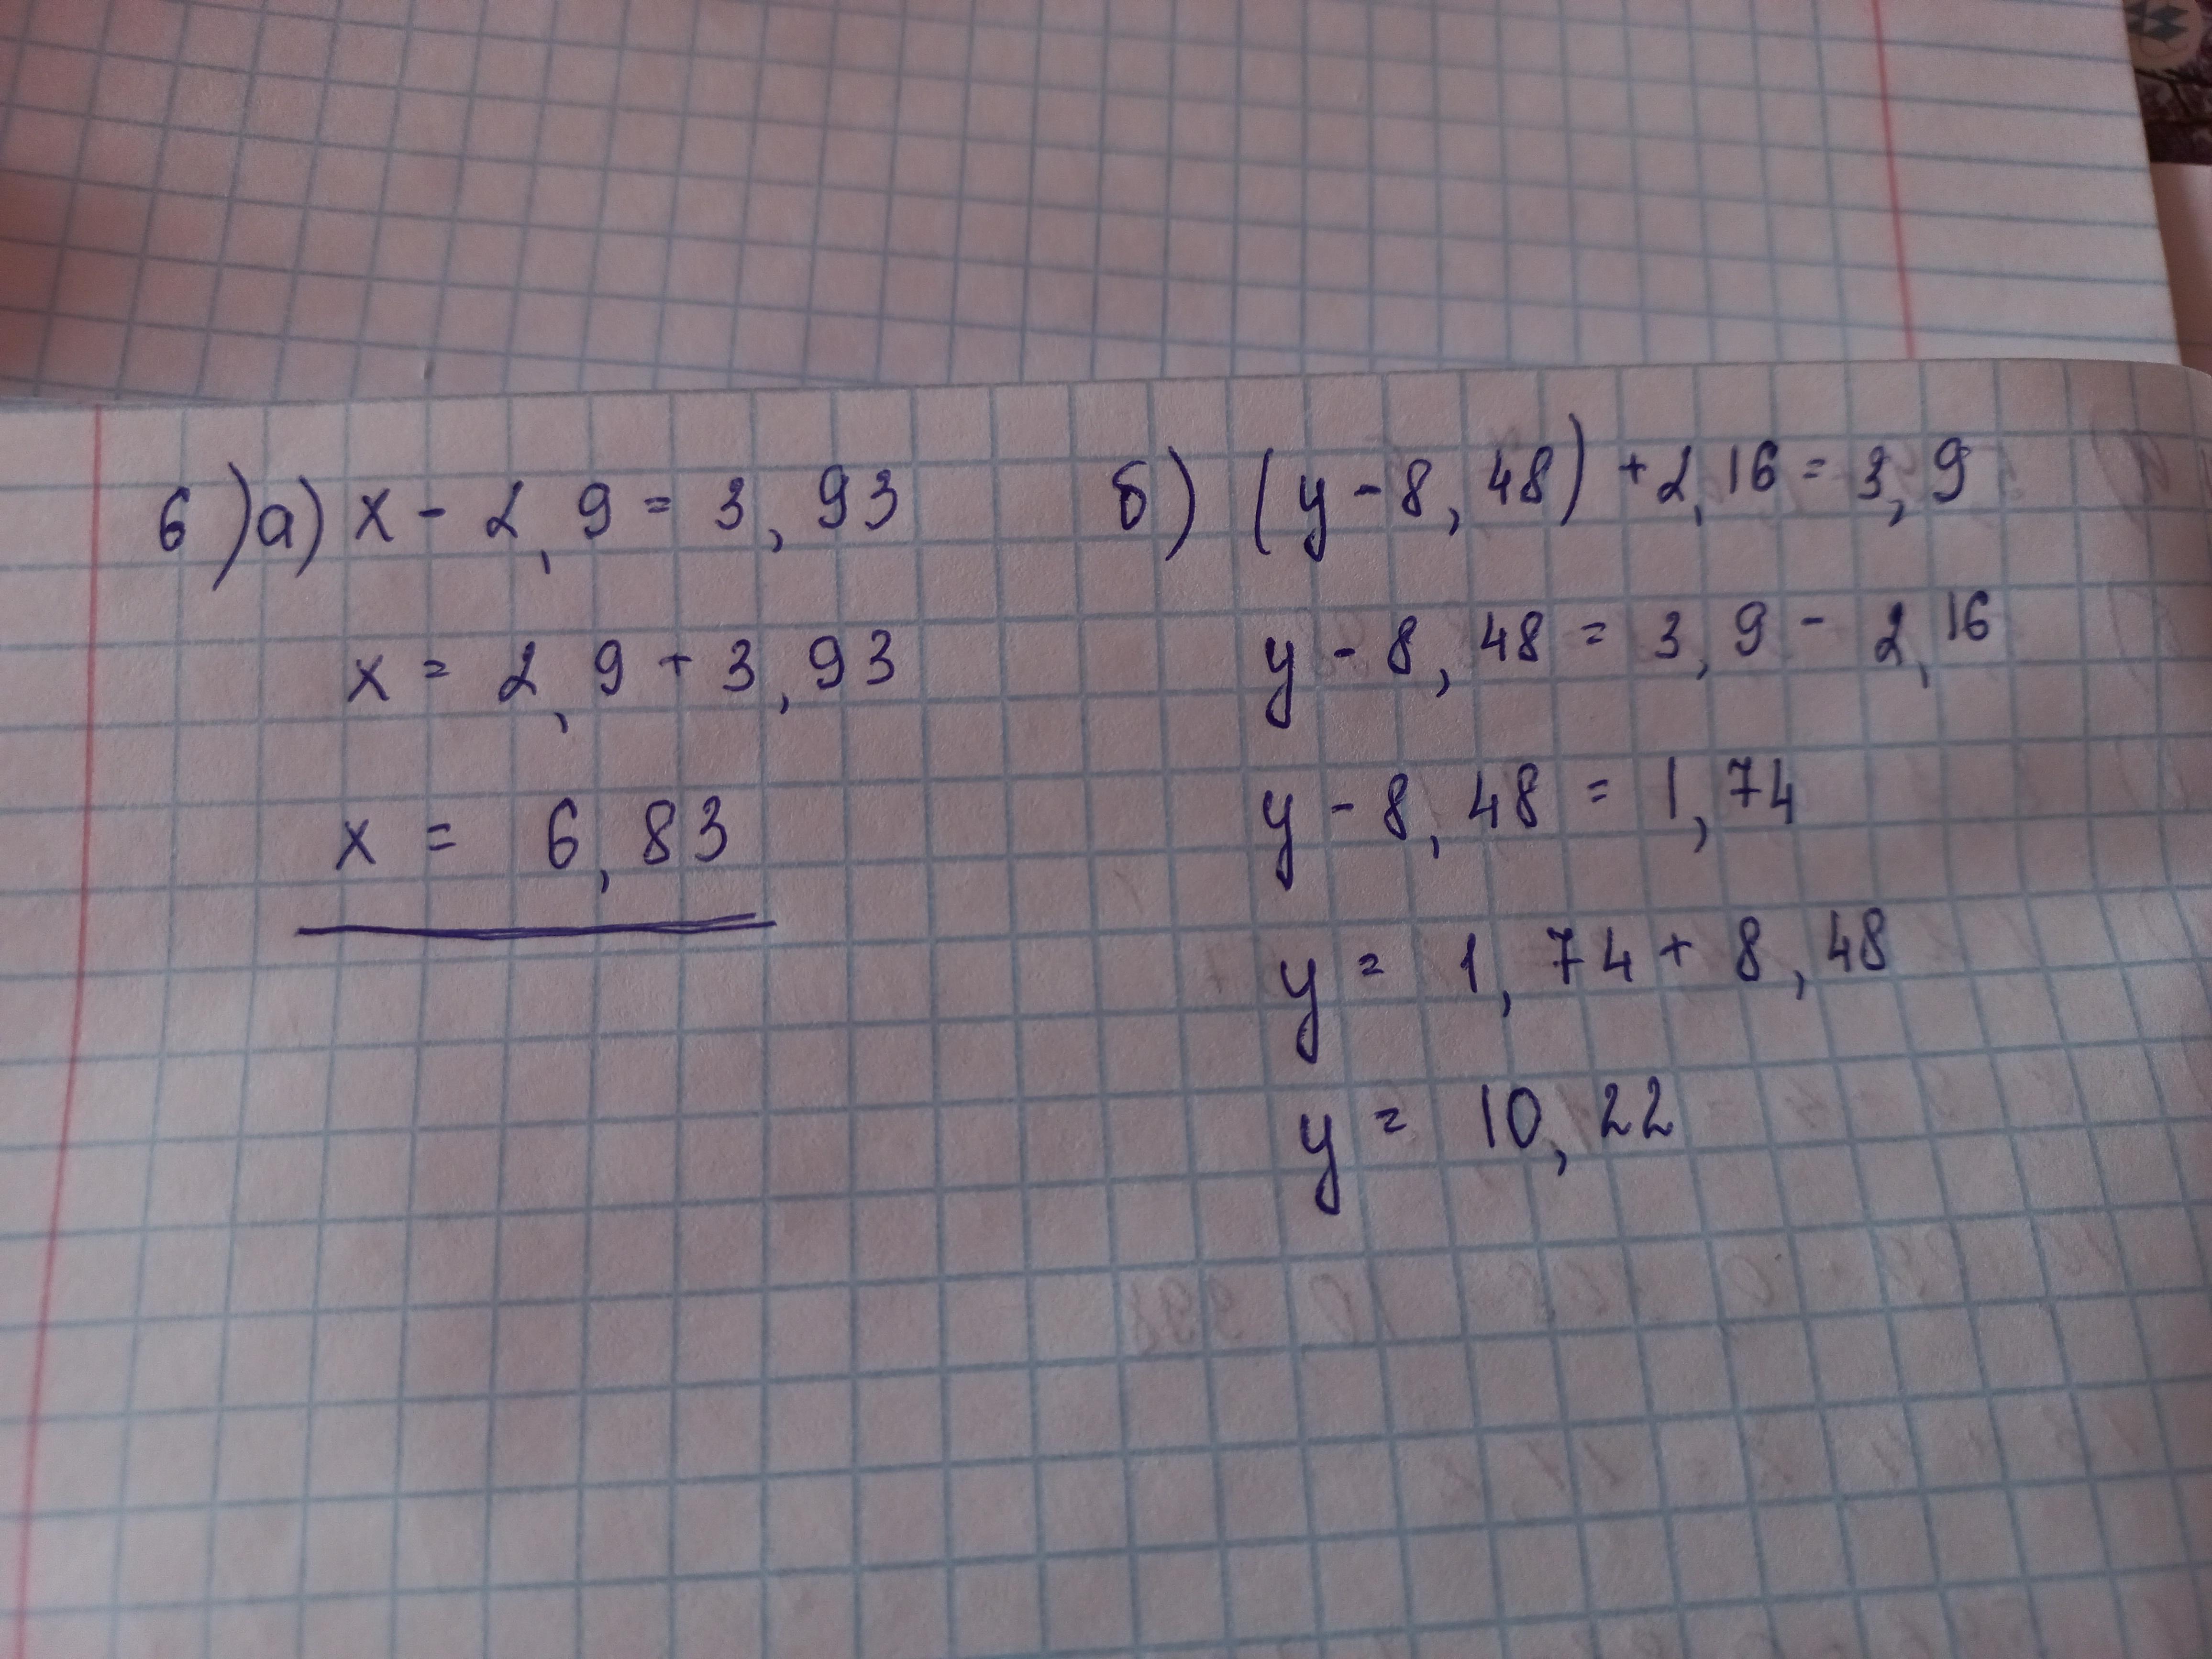 6) а) x - 2,9 = 3,93
x = 2,9 + 3,93
x = 6,83
б) (y - 8,48) + 2,16 = 3,9
y - 8,48 = 3,9 - 2,16
y - 8,48 = 1,74
y = 1,74 + 8,48
y = 10,22